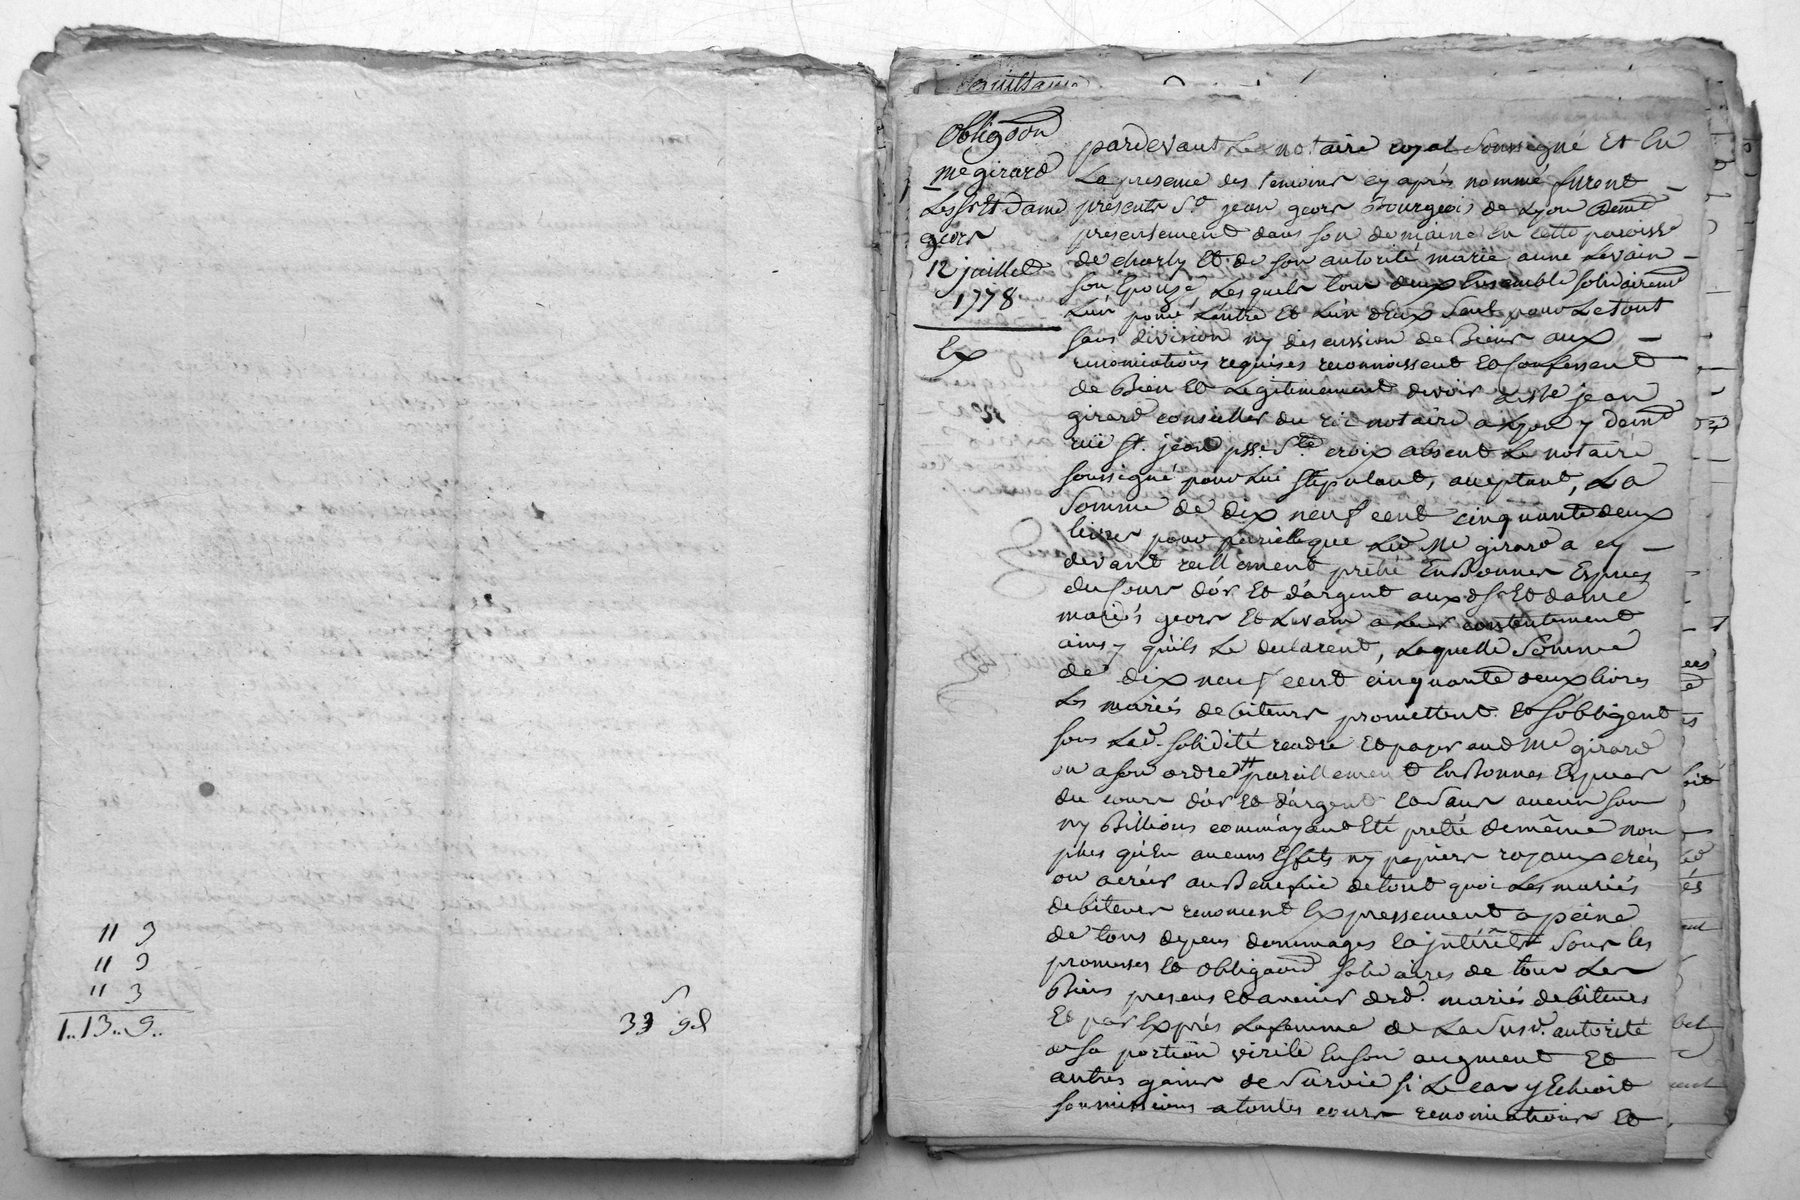 11 9
11 9
11 3
1..13..9..
33 s 9 d
Obligaõn
me girard
Les sr Et Dame
geors
12 juillet
1778
Ex
pardevant Le notaire royal soussigné Et En
La presence des temoins cy après nommé furent
présents Sr. jean geors Bourgeois de Lyon demt
presentement dans son domaine En cette paroisse
de charly Et de son autorité marie anne Levain
son Epouse Lesquels tous deux Ensemble solidairemt
L'un pour L'autre Et L'un d'Eux seul pour Le tout
sans division ny discussion de Biens aux
renonciations requises reconnoissent Et Confessent
de Bien Et Legitimement devoir a Me jean
girard conseiller du roi notaire a Lyon y demt
rüe St. jean psse. Ste croix absent Le notaire
soussigné pour Lui stipulant, acceptant, La
somme de dix neuf cent cinquante deux
livres pour pareille que Led Me girard a cy
devant réellement prêté En Bonnes Especes
du Cours d'or Et d'argent aux d sr Et dame
mariés geors Et Levain a Leur contentement
ainsy qu'ils Le declarent, Laquelle somme
de dix neuf cent cinquante deux livres
Les mariés debiteurs promettent Et s'obligent
sous Lad. solidité rendre Et payer aud Me girard
ou a son ordre pareillement En Bonnes Especes
du cours d'or Et d'argent Et sans aucun son
ny Billions comm'ayant Eté preté de même non
plus qu'En aucuns Effets ny papiers royaux créés
ou a créer au Benefice de tout quoi Les mariés
debiteurs renoncent Expressement a peine
de tous depens dommages Et intérêts sous les
promesses Et obligaõns solidaires de tous Les
Biens presens Et avenir desd. mariés debiteurs
Et par Exprés La femme de La susd. autorité
de sa portion virile En son augment Et
autres gains de survie si Le cas y Echeoit
soumissions a toutes cours renonciations Et